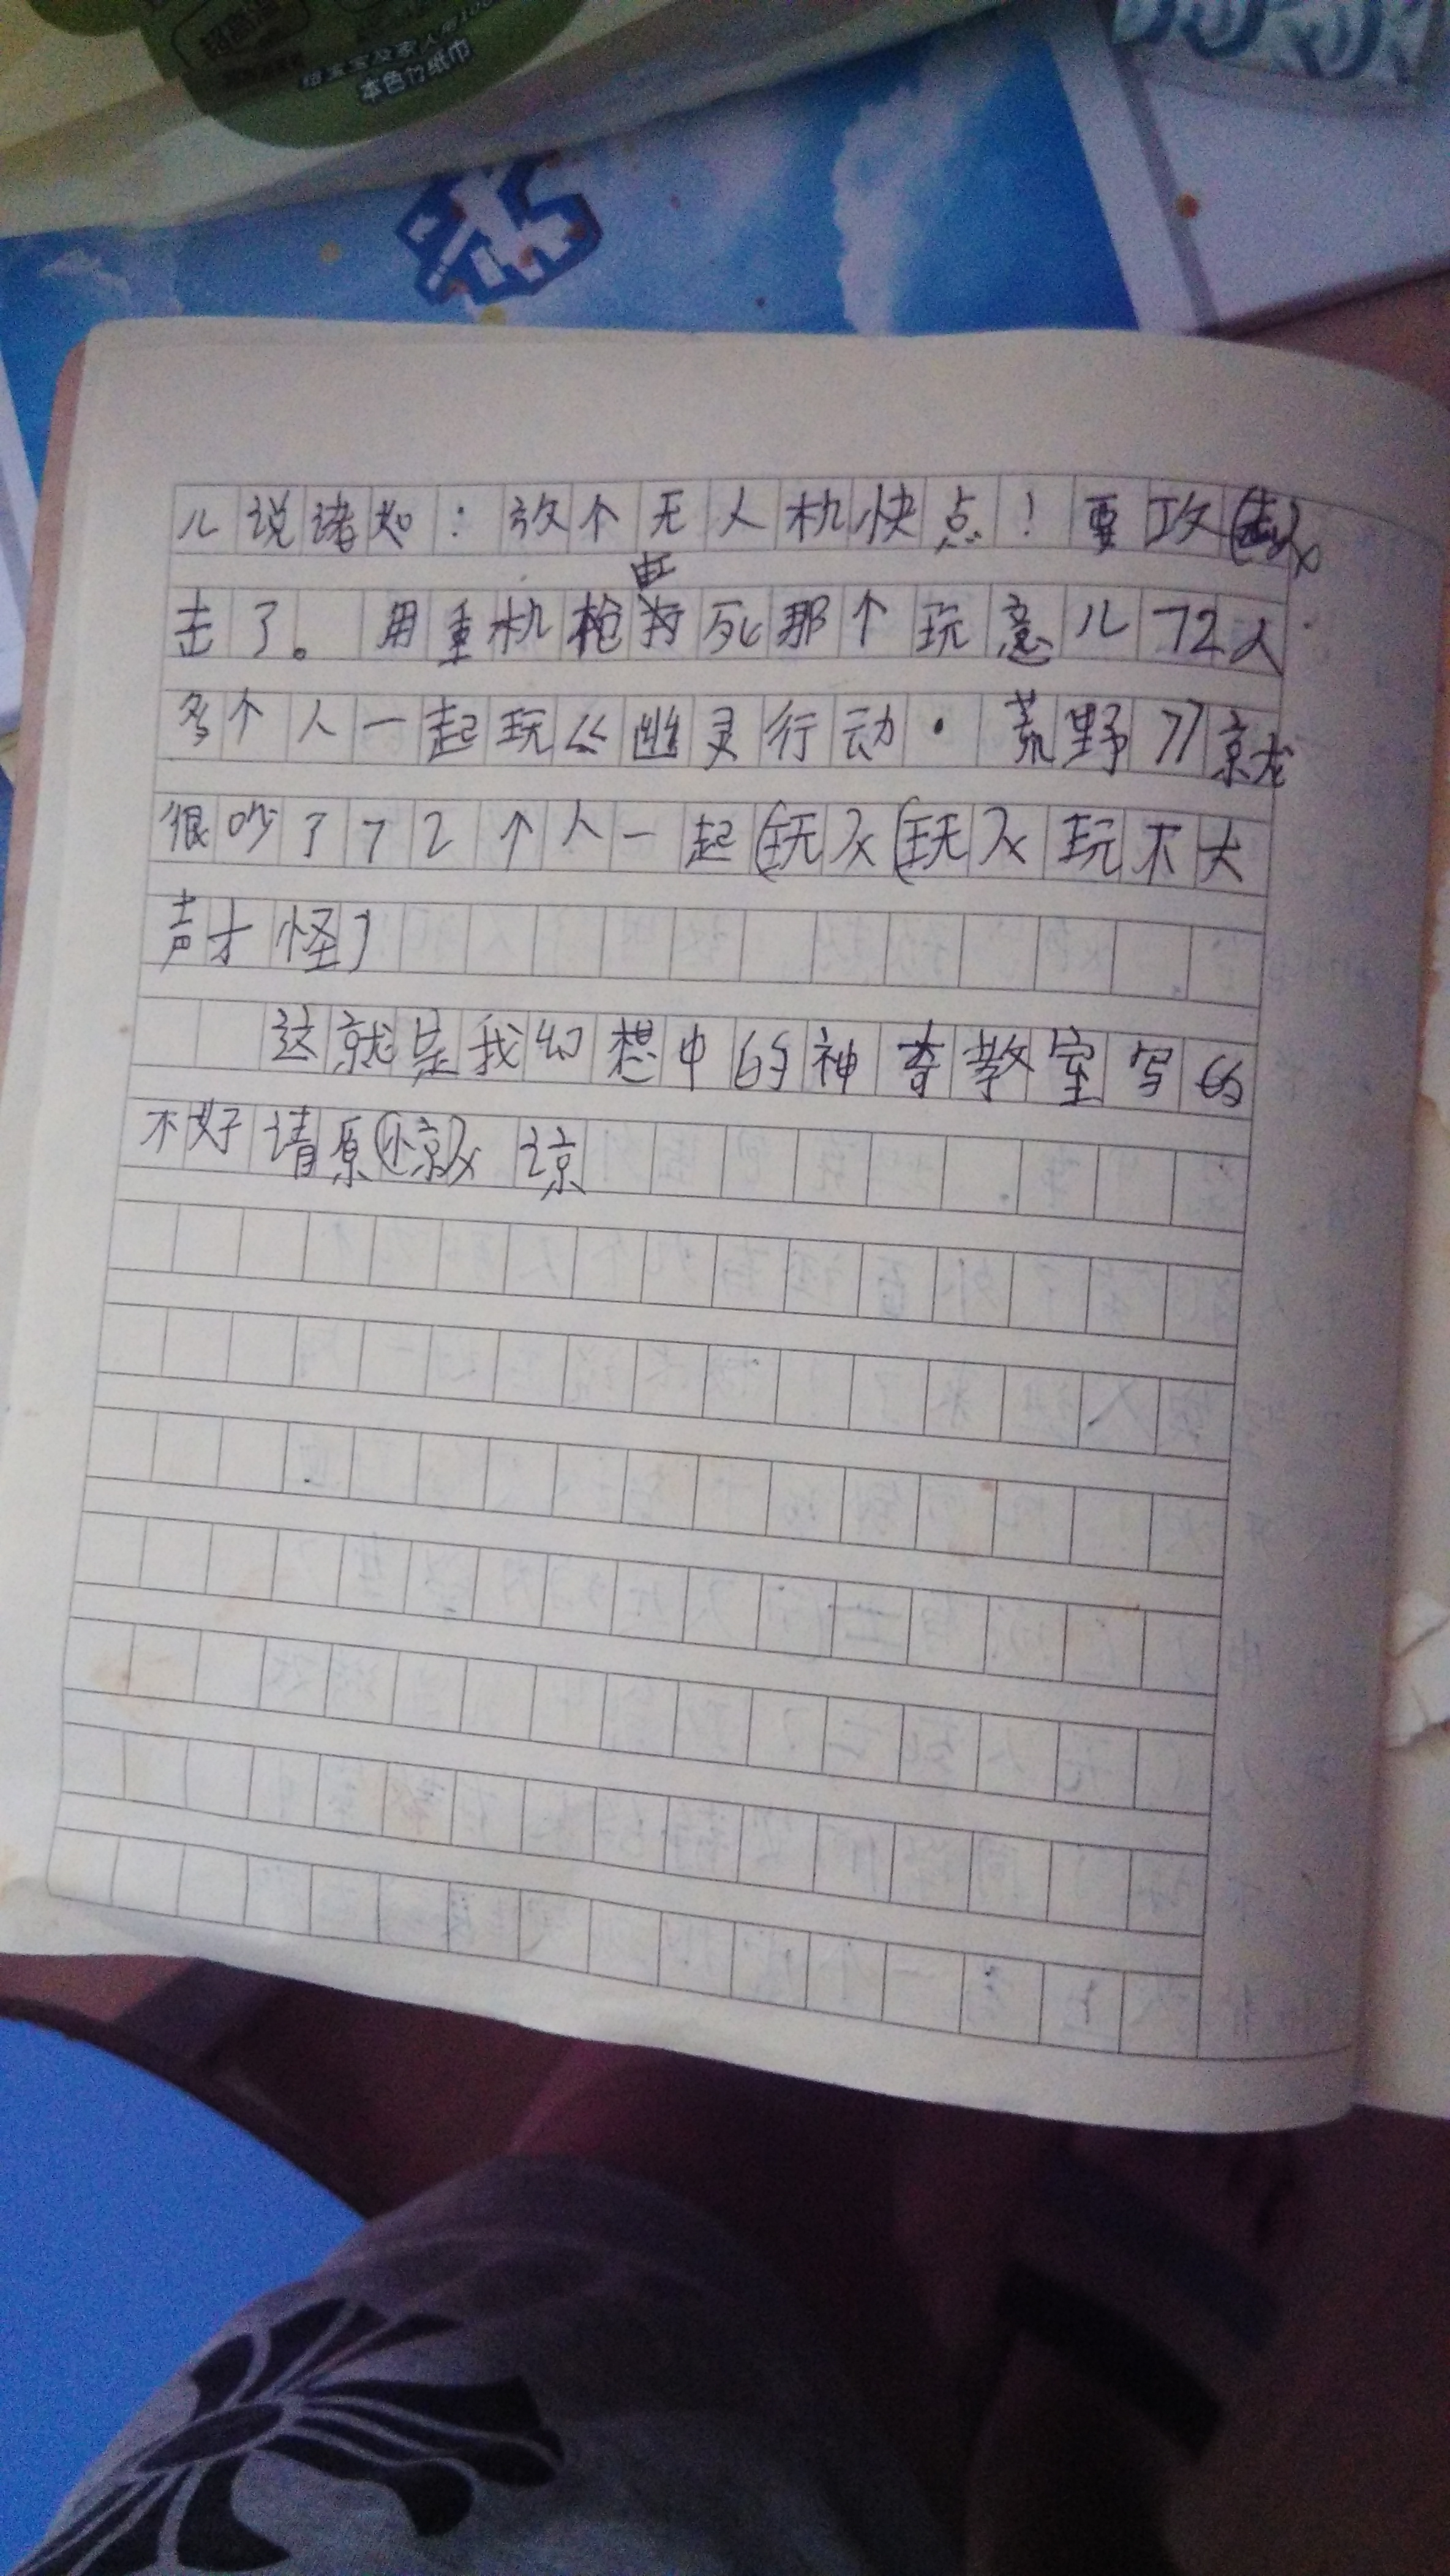 本色竹纸巾
儿说诸如：放个无人机快点！要攻
击了。用重机枪 死那个玩意儿72人
多个人一起玩《幽灵行动·荒野》就
很吵了72个人一起(玩)(玩)玩不大
声才怪]
这就是我幻想中的神奇教室写的
不好请原 谅